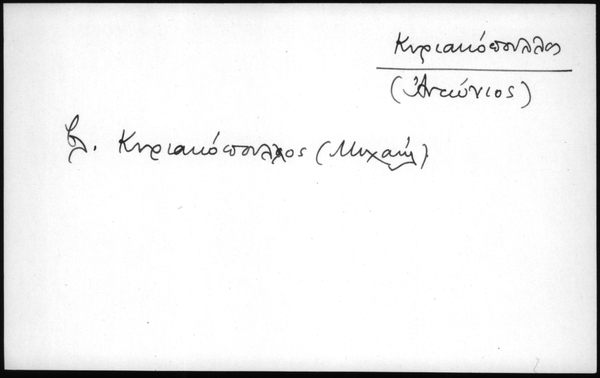 Κυριακόπουλλος
(Ἀντώνιος)
βλ. Κυριακόπουλλος (Μιχαήλ)